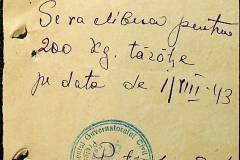 Se va elibera pentru
200 kg. tărâțe
pe data de 1/VIII-43
Guvernatorul Civil